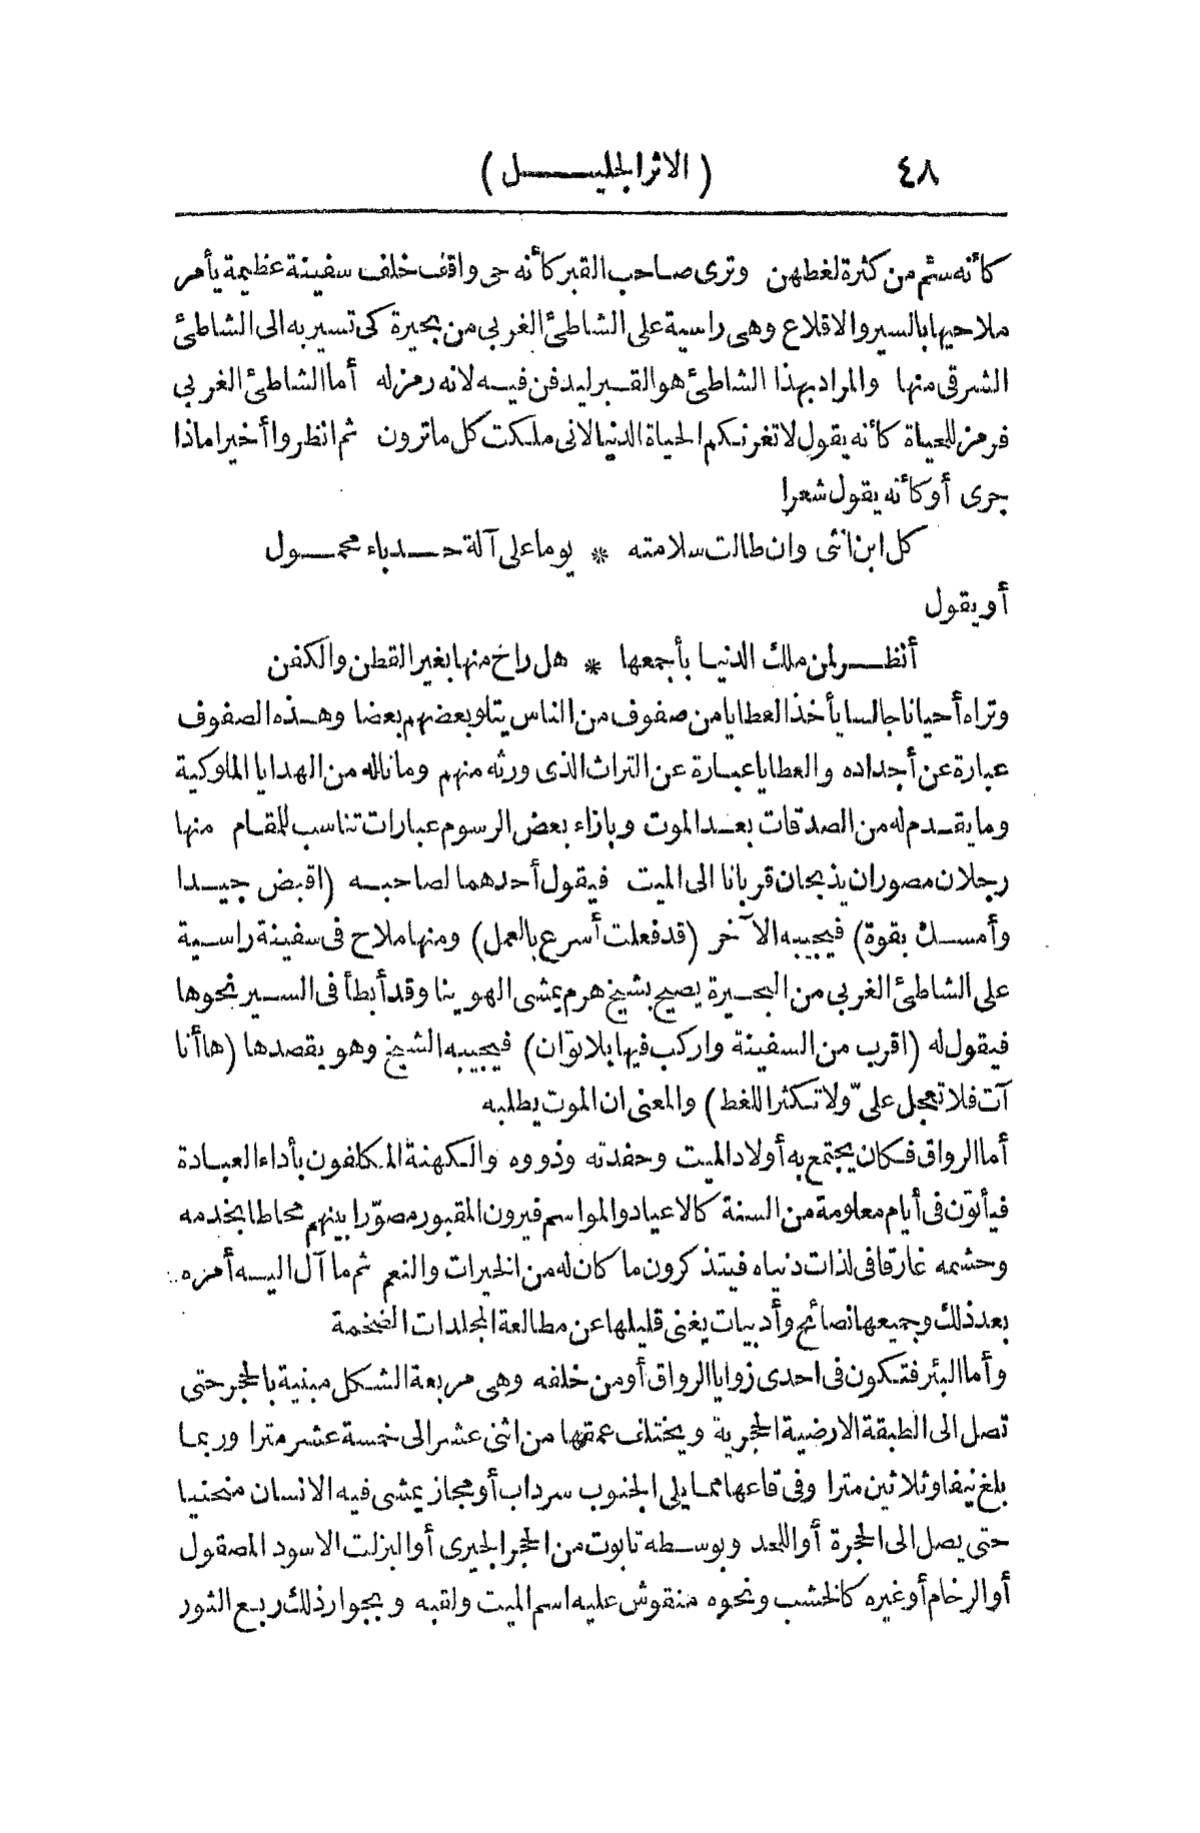 ٤٨ (الاثر الجليـــــل)
كأنه سئم من كثرة لغطهن وترى صاحب القبر كأنه حى واقف خلف سفينة عظيمة يأمر
ملاحيها بالسير والاقلاع وهى راسية على الشاطئ الغربى من بحيرة كى تسير به الى الشاطئ
الشرقى منها والمراد بهذا الشاطئ هو القبر ليدفن فيه لانه رمز له أما الشاطئ الغربى
فرمز للحياة كأنه يقول لا تغرنكم الحياة الدنيا لانى ملكت كل ما ترون ثم انظروا أخيرا ماذا
جرى أو كأنه يقول شعرا
كل ابن انثى وان طالت سلامته * يوما على آلة حدباء محمول
أو يقول
أنظر لمن ملك الدنيا بأجمعها * هل راح منها بغير القطن والكفن
وتراه أحيانا جالسا يأخذ العطايا من صفوف من الناس يتلو بعضهم بعضا وهذه الصفوف
عبارة عن أجداده والعطايا عبارة عن التراث الذى ورثه منهم وما ناله من الهدايا الملوكية
وما يقدم له من الصدقات بعد الموت وبازاء بعض الرسوم عبارات تناسب للمقام منها
رجلان مصوران يذبحان قربانا الى الميت فيقول أحدهما لصاحبه (اقبض جيدا
وأمسك بقوة) فيجيبه الآخر (قد فعلت أسرع بالعمل) ومنها ملاح فى سفينة راسية
على الشاطئ الغربى من البحيرة يصيح بشيخ هرم يمشى الهوينا وقد أبطأ فى السير نحوها
فيقول له (اقرب من السفينة واركب فيها بلا توان) فيجيبه الشيخ وهو يقصدها (ها أنا
آت فلا تعجل علىّ ولا تكثر اللغط) والمعنى ان الموت يطلبه
أما الرواق فكان يجتمع به أولاد الميت وحفدته وذووه والكهنة المكلفون بأداء العبادة
فيأتون فى أيام معلومة من السنة كالاعياد والمواسم فيرون المقبور مصوّرا بينهم محاطا بخدمه
وحشمه غارقا فى لذات دنياه فيتذكرون ما كان له من الخيرات والنعم ثم ما آل اليه أمره
بعد ذلك وجميعها نصائح وأدبيات يغنى قليلها عن مطالعة المجلدات الضخمة
وأما البئر فتكون فى احدى زوايا الرواق أو من خلفه وهى مربعة الشكل مبنية بالحجر حتى
تصل الى الطبقة الارضية الحجرية ويختلف عمقها من اثنى عشر الى خمسة عشر مترا وربما
بلغ نيفا وثلاثين مترا وفى قاعها مما يلى الجنوب سرداب أو مجاز يمشى فيه الانسان منحنيا
حتى يصل الى الحجرة أو اللحد وبوسطه تابوت من الحجر الجيرى أو البزلت الاسود المصقول
أو الرخام أو غيره كالخشب ونحوه منقوش عليه اسم الميت ولقبه وبجوار ذلك ربع الثور